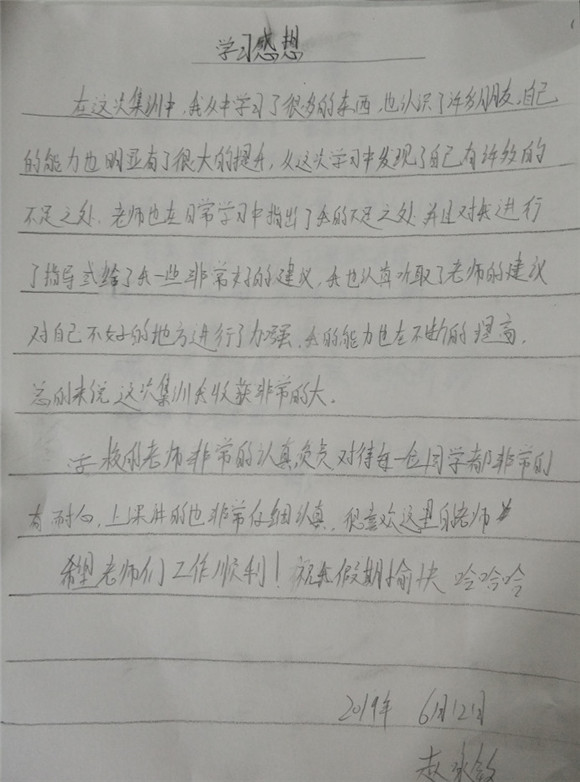 学习感想
在这次集训中，我从中学习了很多的东西，也认识了许多朋友，自己
的能力也明显有了很大的提升，从这次学习中发现了自己有许多的
不足之处，老师也在日常学习中指出了我的不足之处并且对我进行
了指导式给了我一些非常好的建议，我也认真听取了老师的建议
对自己不好的地方进行了加强，我的能力也在不断的提高，
总的来说这次集训我收获非常的大。
校的老师非常的认真负责对待每一位同学都非常的
有耐心，上课讲的也非常仔细认真，很喜欢这里的老师
希望老师们工作顺利！祝我假期愉快 哈哈哈
2019年 6月12日
赵